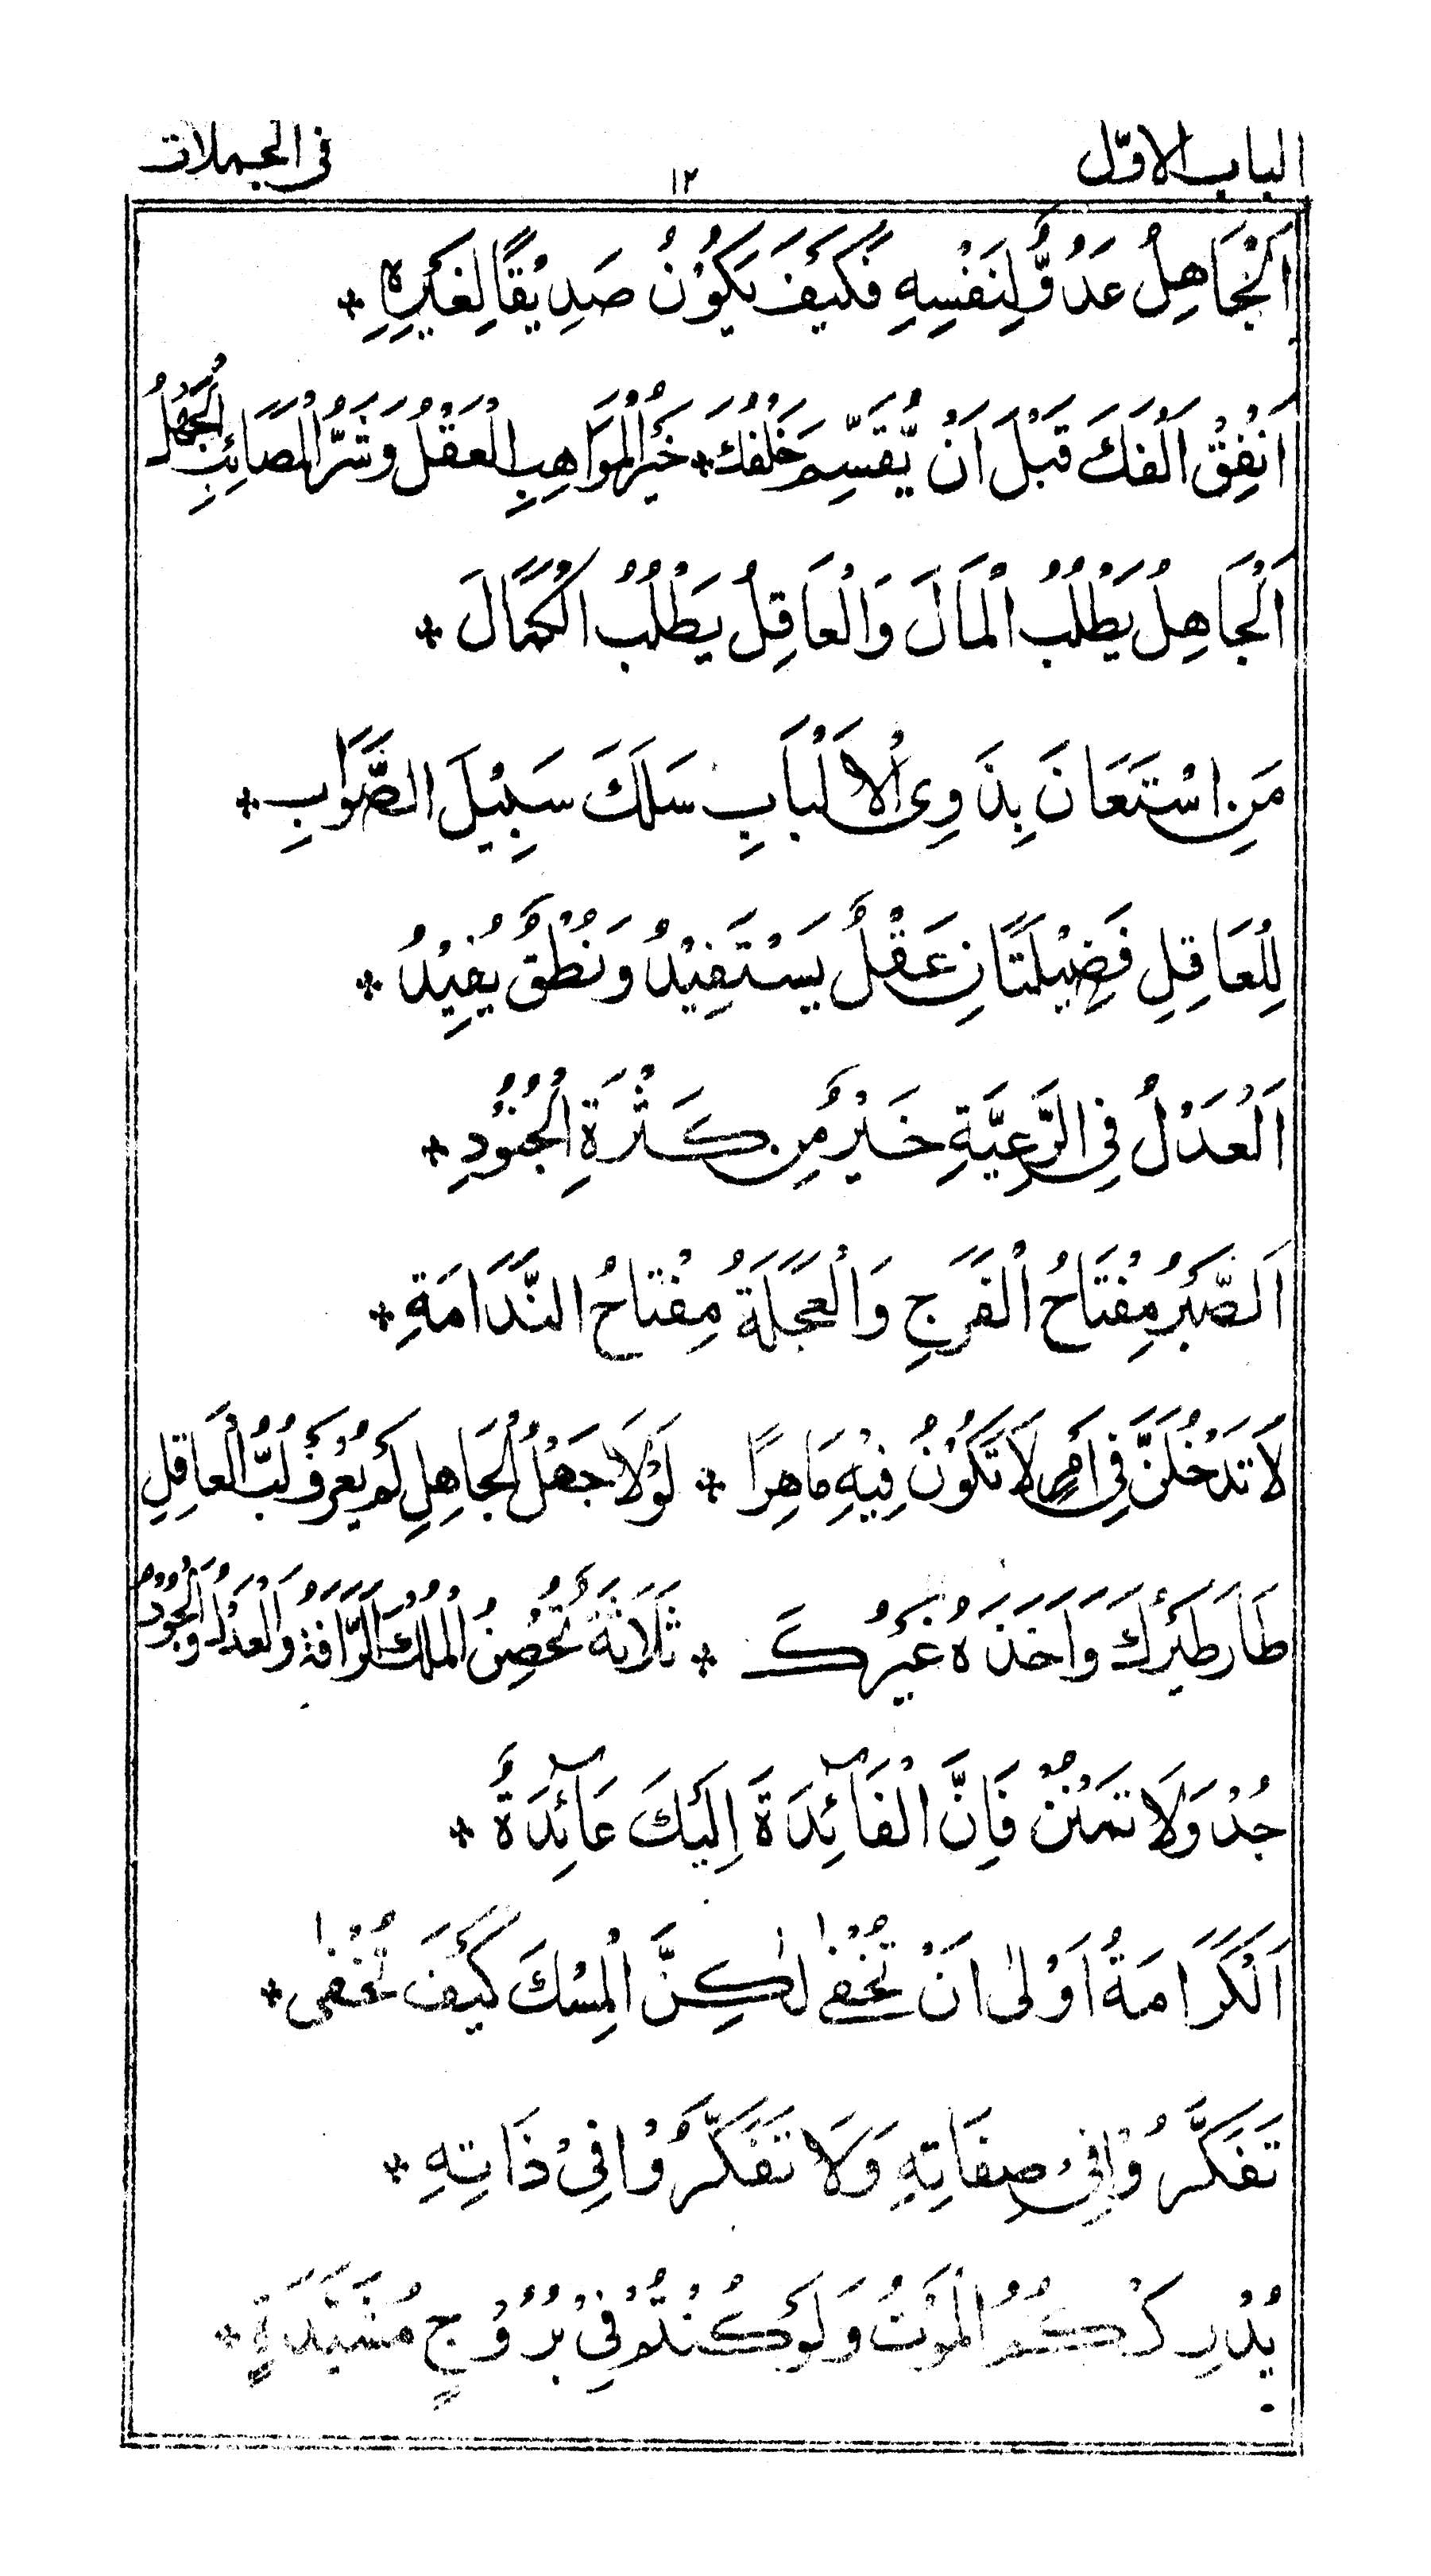 الباب الاوّل ١٢ فى الجملات
اَلْجَاهِلُ عَدُوٌّ لِنَفْسِهٖ فَكَيْفَ يَكُوْنُ صَدِيْقًا لِغَيْرِهٖ *
اَنْفِقْ اَلْفَكَ قَبْلَ اَنْ يُّقَسِّمَ خَلْفُكَ * خَيْرُ الْمَوَاهِبِ الْعَقْلُ وَشَرُّ الْمَصَائِبِ الْجَهْلُ
اَلْجَاهِلُ يَطْلُبُ الْمَالَ وَالْعَاقِلُ يَطْلُبُ الْكَمَالَ *
مَنِ اسْتَعَانَ بِذَوِى الْاَلْبَابِ سَلَكَ سَبِيْلَ الصَّوَابِ *
لِلْعَاقِلِ فَضِيْلَتَانِ عَقْلٌ يَسْتَفِيْدُ وَنُطْقٌ يُفِيْدُ *
اَلْعَدْلُ فِى الرَّعِيَّةِ خَيْرٌ مِنْ كَثْرَةِ الْجُنُوْدِ *
اَلصَّبْرُ مِفْتَاحُ الْفَرَجِ وَالْعَجَلَةُ مِفْتَاحُ النَّدَامَةِ *
لَا تَدْخُلَنَّ فِى اَمْرٍ لَا تَكُوْنُ فِيْهِ مَاهِرًا * لَوْلَا جَهْلُ الْجَاهِلِ لَمْ يُعْرَفْ لُبُّ الْعَاقِلِ
طَارَ طَيْرُكَ وَاَخَذَهُ غَيْرُكَ * ثَلَاثَةٌ تُحْصِنُ الْمُلْكَ الرَّافَةُ وَالْعَدْلُ وَالْجُوْدُ
جُدْ وَلَا تَمْنُنْ فَاِنَّ الْفَآئِدَةَ اِلَيْكَ عَآئِدَةٌ *
اَلْكَرَامَةُ اَوْلٰى اَنْ تُخْفٰى لٰكِنَّ الْمِسْكَ كَيْفَ تُخْفٰى *
تَفَكَّرُوْا فِىْ صِفَاتِهٖ وَلَا تَفَكَّرُوْا فِىْ ذَاتِهٖ *
يُدْرِكْكُمُ الْمَوْتُ وَلَوْ كُنْتُمْ فِىْ بُرُوْجٍ مُشَيَّدَةٍ *